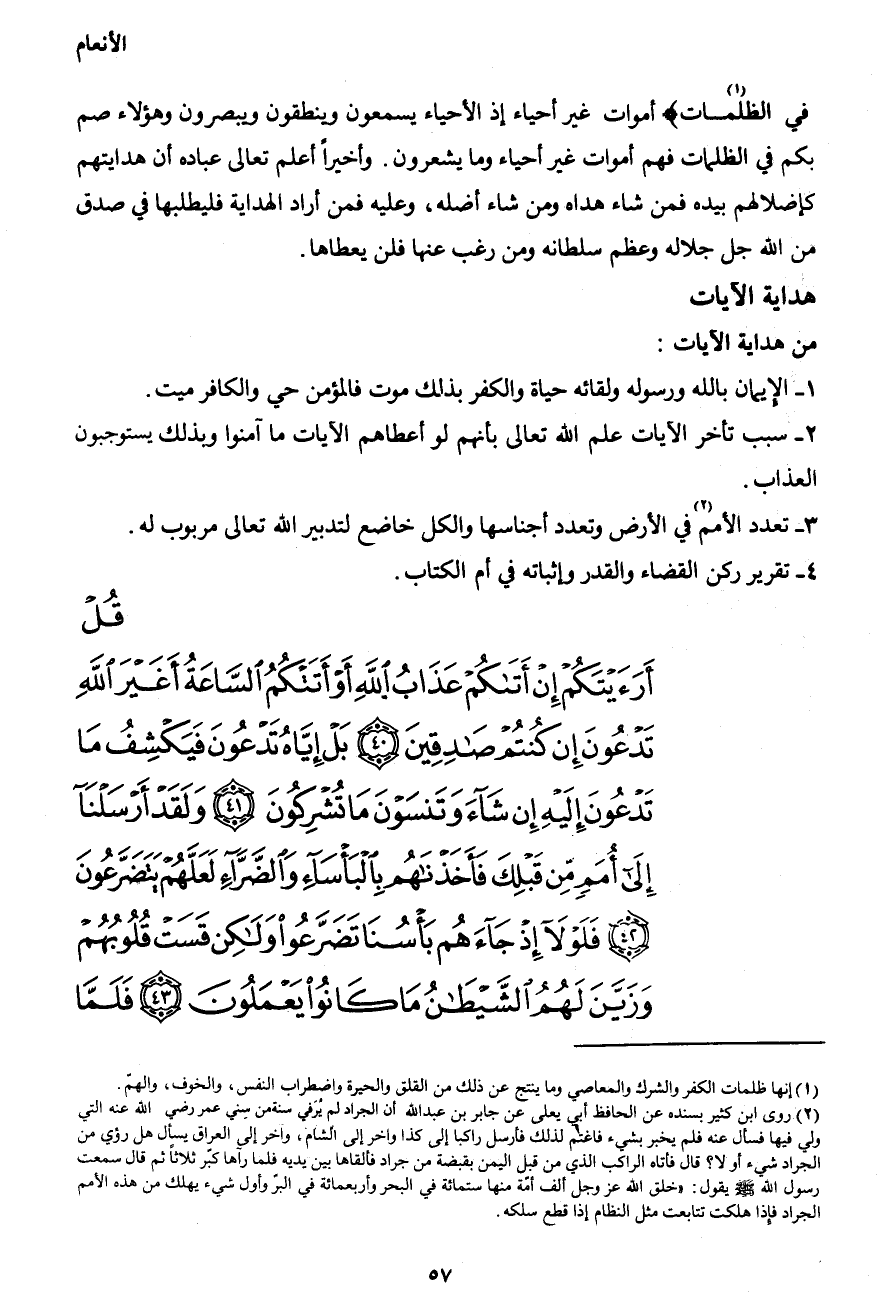 الأنعام
في الظلمـــات(١)﴾ أموات غير أحياء إذ الأحياء يسمعون وينطقون ويبصرون وهؤلاء صم
بكم في الظلمات فهم أموات غير أحياء وما يشعرون. وأخيراً أعلم تعالى عباده أن هدايتهم
كإضلالهم بيده فمن شاء هداه ومن شاء أضله، وعليه فمن أراد الهداية فليطلبها في صدق
من الله جل جلاله وعظم سلطانه ومن رغب عنها فلن يعطاها.
هداية الآيات
من هداية الآيات :
١ـ الإيمان بالله ورسوله ولقائه حياة والكفر بذلك موت فالمؤمن حي والكافر ميت.
٢ـ سبب تأخر الآيات علم الله تعالى بأنهم لو أعطاهم الآيات ما آمنوا وبذلك يستوجبون
العذاب.
٣ـ تعدد الأمم(٢) في الأرض وتعدد أجناسها والكل خاضع لتدبير الله تعالى مربوب له.
٤ـ تقرير ركن القضاء والقدر وإثباته في أم الكتاب.
قُلْ
أَرَءَيْتَكُمْ إِنْ أَتَىٰكُمْ عَذَابُ ٱللَّهِ أَوْ أَتَتْكُمُ ٱلسَّاعَةُ أَغَيْرَ ٱللَّهِ
تَدْعُونَ إِن كُنتُمْ صَٰدِقِينَ ٤٠ بَلْ إِيَّاهُ تَدْعُونَ فَيَكْشِفُ مَا
تَدْعُونَ إِلَيْهِ إِن شَآءَ وَتَنسَوْنَ مَا تُشْرِكُونَ ٤١ وَلَقَدْ أَرْسَلْنَآ
إِلَىٰٓ أُمَمٍ مِّن قَبْلِكَ فَأَخَذْنَٰهُم بِٱلْبَأْسَآءِ وَٱلضَّرَّآءِ لَعَلَّهُمْ يَتَضَرَّعُونَ
٤٢ فَلَوْلَآ إِذْ جَآءَهُم بَأْسُنَا تَضَرَّعُوا۟ وَلَٰكِن قَسَتْ قُلُوبُهُمْ
وَزَيَّنَ لَهُمُ ٱلشَّيْطَٰنُ مَا كَانُوا۟ يَعْمَلُونَ ٤٣ فَلَمَّا
(١) إنها ظلمات الكفر والشرك والمعاصي وما ينتج عن ذلك من القلق والحيرة واضطراب النفس، والخوف، والهمّ.
(٢) روى ابن كثير بسنده عن الحافظ أبي يعلى عن جابر بن عبدالله أن الجراد لم يُرَفي سنةمن سِني عمر رضي الله عنه التي
ولي فيها فسأل عنه فلم يخبر بشيء فاغتمّ لذلك فأرسل راكبا إلى كذا وآخر إلى الشام، وآخر إلى العراق يسأل هل رؤي من
الجراد شيء أو لا؟ قال فأتاه الراكب الذي من قبل اليمن بقبضة من جراد فألقاها بين يديه فلما رآها كبّر ثلاثاً ثم قال سمعت
رسول الله ﷺ يقول: «خلق الله عز وجل ألف أمّة منها ستمائة في البحر وأربعمائة في البرّ وأول شيء يهلك من هذه الأمم
الجراد فإذا هلكت تتابعت مثل النظام إذا قطع سلكه.
٥٧